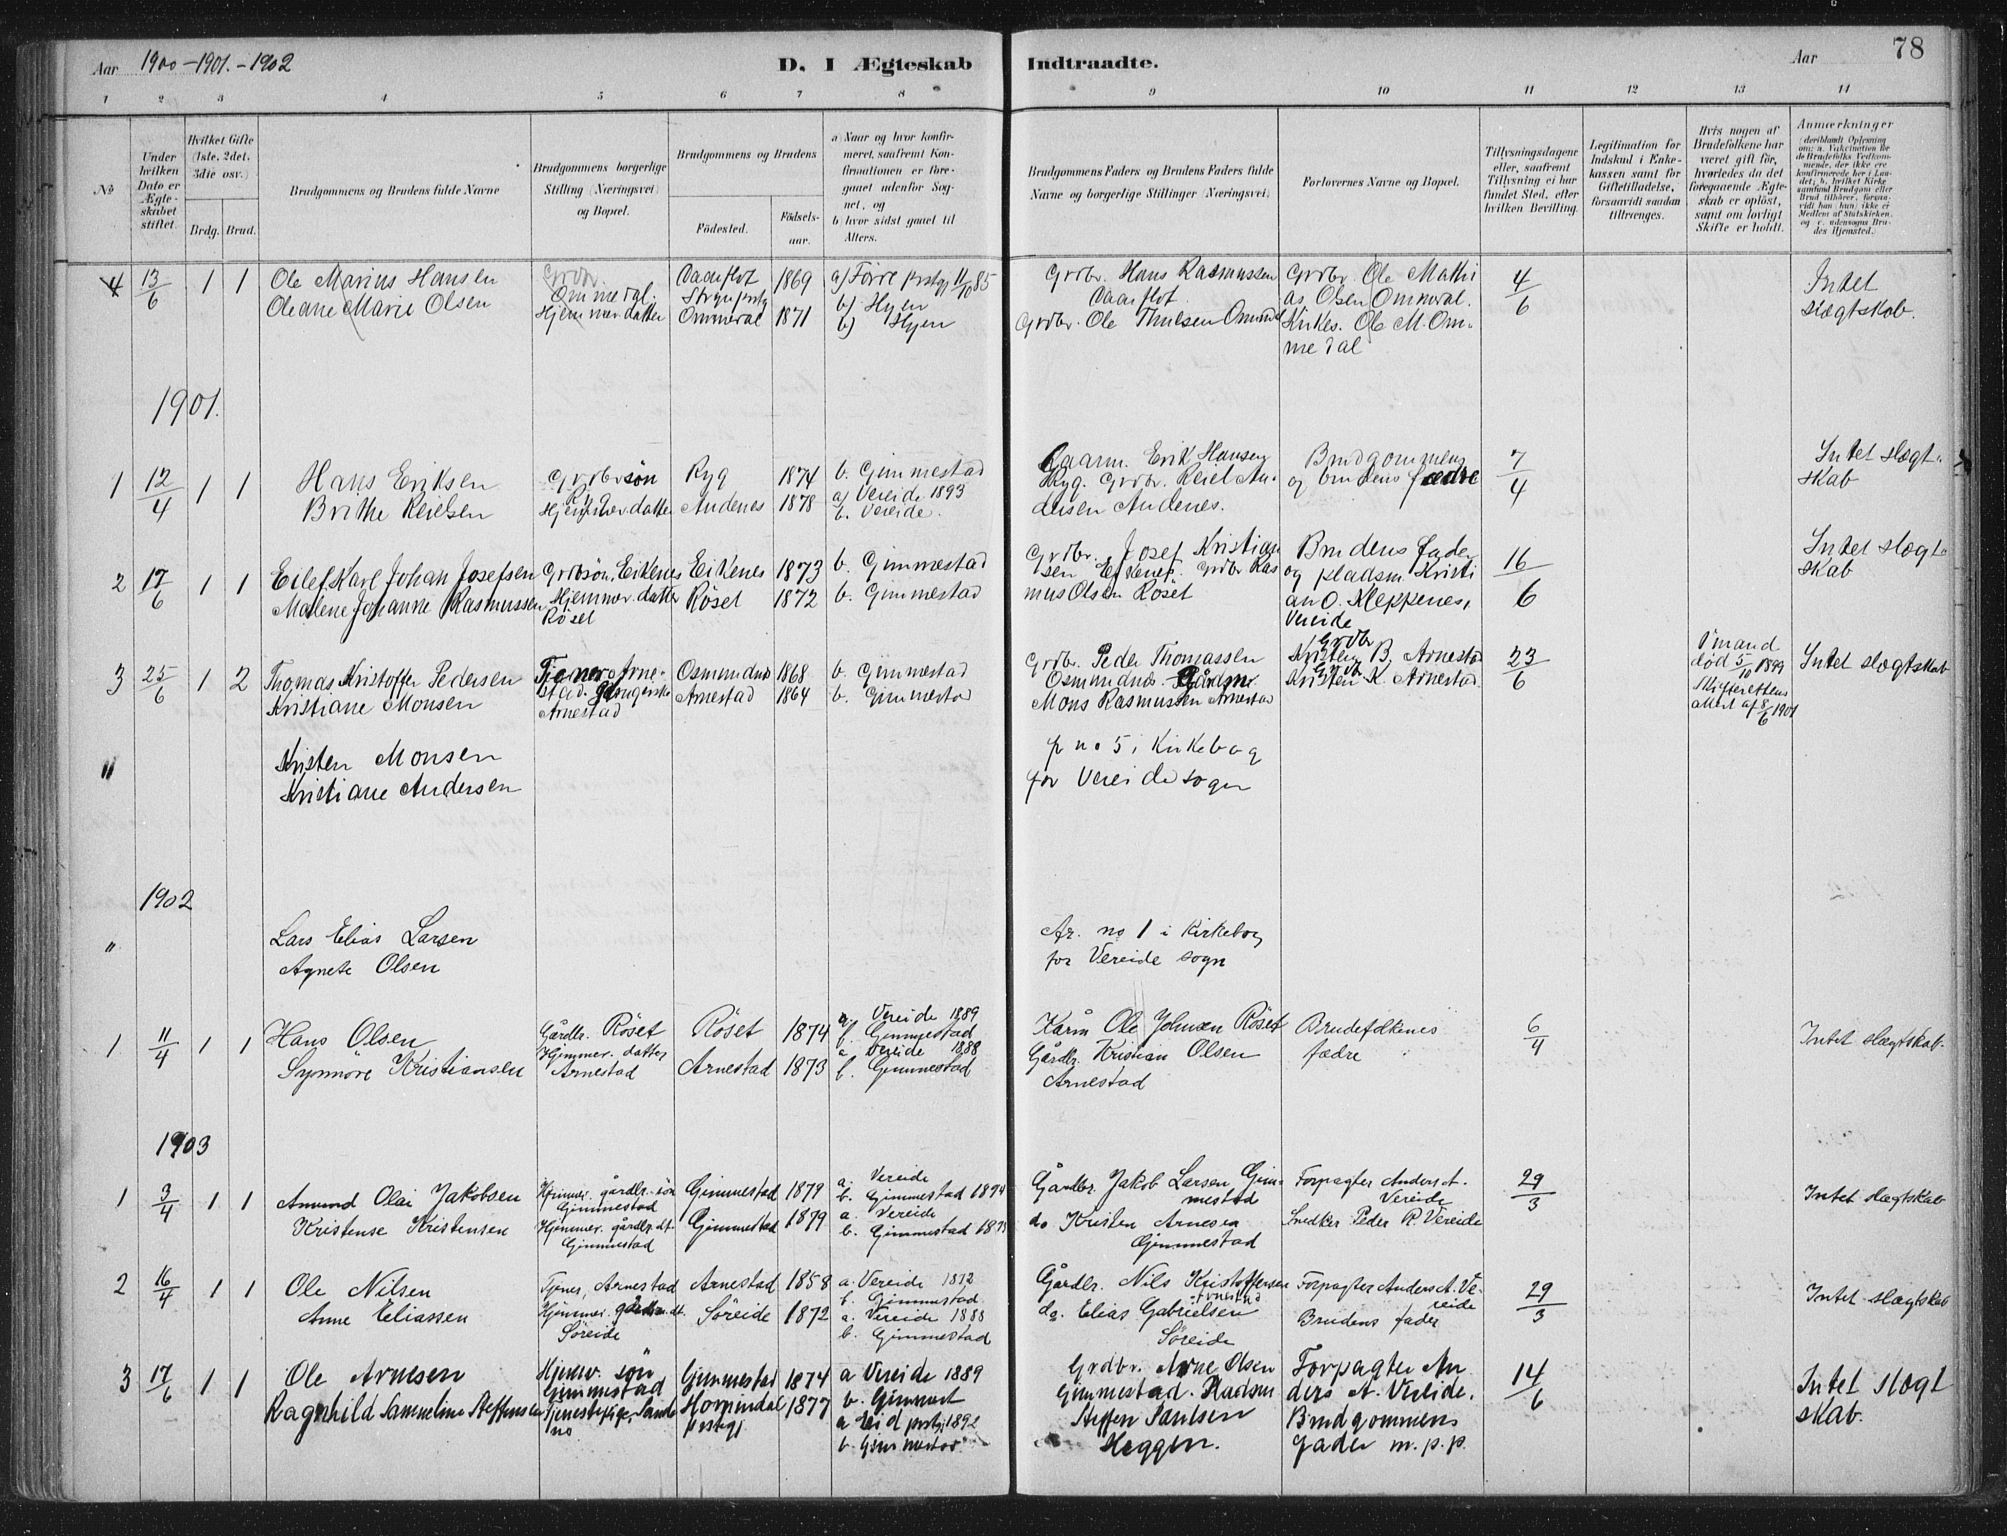 Aar 1900-1901.-1902
D. I Ægteskab Indtraadte.
Aar 78
1 2 3 4 5 6 7 8 9 10 11 12 13 14
No
Under hvilken Dato er Ægteskabet stiftet.
Hvilket Gifte (1ste, 2det, 3die osv.)
Brdg. Brud.
Brudgommens og Brudens fulde Navne
Brudgommens borgerlige Stilling (Næringsvei) og Bopæl.
Brudgommens og Brudens
Fødested.
Fødselsaar.
a) Naar og hvor konfirmeret, saafremt Konfirmationen er foregaaet udenfor Sognet, og
b) hvor sidst gaaet til Alters.
Brudgommens Faders og Brudens Faders fulde Navne og borgerlige Stillinger (Næringsvei).
Forlovernes Navne og Bopæl.
Tillysningsdagene eller, saafremt Tillysning ei har fundet Sted, efter hvilken Bevilling.
Legitimation for Indskud i Enkekassen samt for Giftetilladelse, forsaavidt saadan tiltrænges.
Hvis nogen af Brudefolkene har været gift før, hvorledes da det foregaaende Ægteskab er opløst, samt om lovligt Skifte er holdt.
Anmærkninger
4 13/6 1 1
Ole Marius Hansen
Oleane Marie Olsen
Grdbr. Ommedal.
Hjemmev. datter
1869
Ommedal 1871
a) Förre prstgj 11/10 85
b) Hyen
b) Hyen
Grdbr. Hans Rasmussen
Grdbr. Ole Thulsen Ommedal
Grdbr. Ole Mathi
as Olsen Ommedal.
Kirkes. Ole M. Om
medal
4/6
Intet
slægtskab.
1901.
1 12/4 1 1
Hans Eriksen
Brithe Reielsen
Grdbrsön
Ryg
Hjemmev. datter
Ryg 1874
Andenes 1878
b. Gimmestad
a) Vereide 1893
b. Vereide.
Kaarm. Erik Hansen
Ryg. Grdbr. Reiel An
dersen Andenes.
Brudgommens
og brudens fædre
7/4
Intet slægt
skab
2 17/6 1 1
Eilef Karl Johan Josefsen
Malene Johanne Rasmussen
Grdbsön, Eikenes
Hjemmev. datter
Röset
Eikenes 1873
Röset 1872
b. Gimmestad
b. Gimmestad
Grdbr. Josef Kristian
sen Eikenes. Grdbr Ras
mus Olsen Röset
Brudens fader
og pladsm. Kristi
an O. Kleppenes,
Vereide
16/6
Intet slægt
skab
3 25/6 1 2
Thomas Kristoffer Pedersen
Kristiane Monsen
Tjener Arne
stad.
Arnestad
Osmundnes 1868
Arnestad 1864
b. Gimmestad
b. Gimmestad
Grdbr. Peder Thomassen
Osmundnes
Mons Rasmussen Arnestad
Grdbr
Kristen B. Arnestad
Grdbr
Kristen K. Arnestad.
23/6
mand
död 5/10 1899
Skifterettens
Attest af 8/6 1901
Intet slægtskab
"
Kristen Monsen
Kristiane Andersen
fr no 5 i Kirkebog
for Vereide sogn
1902
"
Lars Elias Larsen
Agnete Olsen
Ar. no 1 i Kirkebog
for Vereide sogn
1 11/4 1 1
Hans Olsen
Synnöve Kristiansen
Gårdbr. Röset
Hjemmev. datter
Arnestad
Röset 1874
Arnestad 1873
a. Vereide 1889
b. Gimmestad
a. Vereide 1888
b. Gimmestad
Kårm Ole Johnsen Röset
Gårdbr. Kristian Olsen
Arnestad
Brudefolkenes
fædre
6/4
Intet slægtskab.
1903
1 3/4 1 1
Amund Olai Jakobsen
Kristense Kristensen
Hjemmev. gårdbr. sön
Gimmestad
Hjemmev. gårdbr. dt.
Gimmestad
Gimmestad 1879
Gimmestad 1879
a. Vereide
b. Gimmestad 1894
a. Vereide
b. Gimmestad
Gårdbr. Jakob Larsen Gim
mestad
do Kristen Arnesen
Gimmestad
Forpagter Anders A.
Vereide
Snedker Peder R. Vereide
29/3
Intet slægtskab
2 16/4 1 1
Ole Nilsen
Anne Eliassen
Tjener, Arnestad
Hjemmev. gårdbr. dt.
Söreide
Arnestad 1858
Söreide 1872
a. Vereide 1872
b. Gimmestad
a. Vereide 1888
b. Gimmestad
Gårdbr. Nils Kristoffersen
Arnestad
do. Elias Gabrielsen
Söreide
Forpagter Anders A. Ve
reide
Brudens fader
29/3
Intet slægtskab
3 17/6 1 1
Ole Arnesen
Ragnhild Sammeline Steffensen
Hjemmev. sön
Gimmestad
Tjenestepige, Sande
no
Gimmestad 1874
Hornindal 1877
prstgj
a Vereide 1889
b. Gimmest
a Eid prstgj 1892
b. Gimmestad
Grdbr. Arne Olsen
Gimmestad. Pladsm
Steffen Paulsen
Heggen.
Forpagter An
ders A. Vereide.
Brudgommens
fader m. p. p.
14/6
Intet slægt
skab.